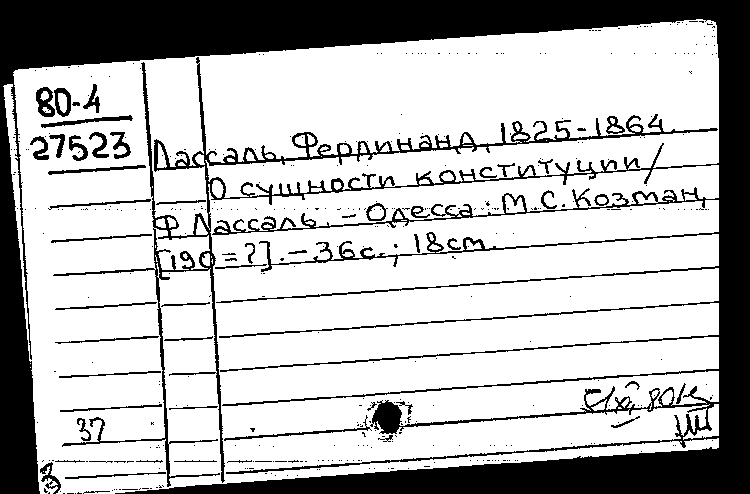 80-4
27523
Лассаль, Фердинанд, 1825-1864.
О сущности конституции /
Ф Лассаль. - Одесса: М.С. Козман,
[190=?]. - 36с.; 18см.
37